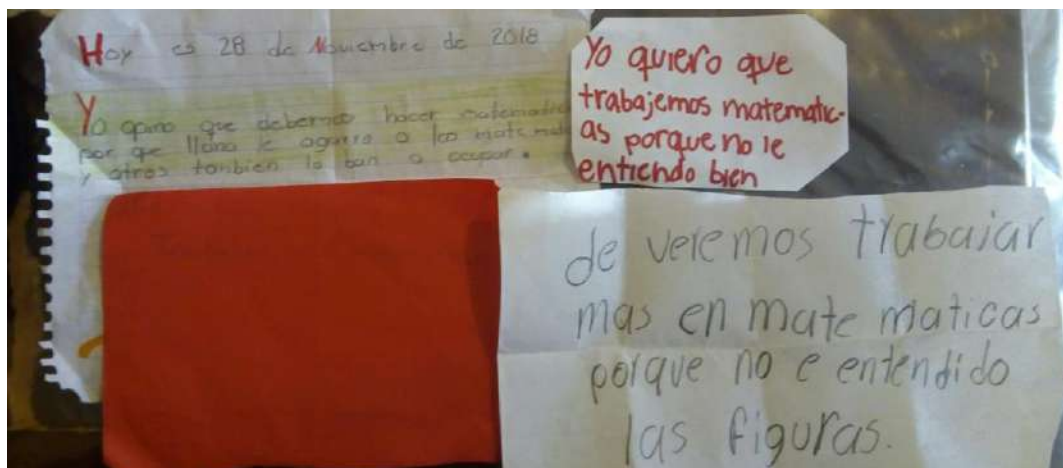 Hoy es 28 de Noviembre de 2018
Yo opino que debemos hacer matematic
por que llano le agarro a las matemat
y otros tanbien lo ban a ocupar.
Yo quiero que
trabajemos matematic-
as porque no le
entiendo bien
de veremos trabajar
mas en mate maticas
porque no e entendido
las figuras.